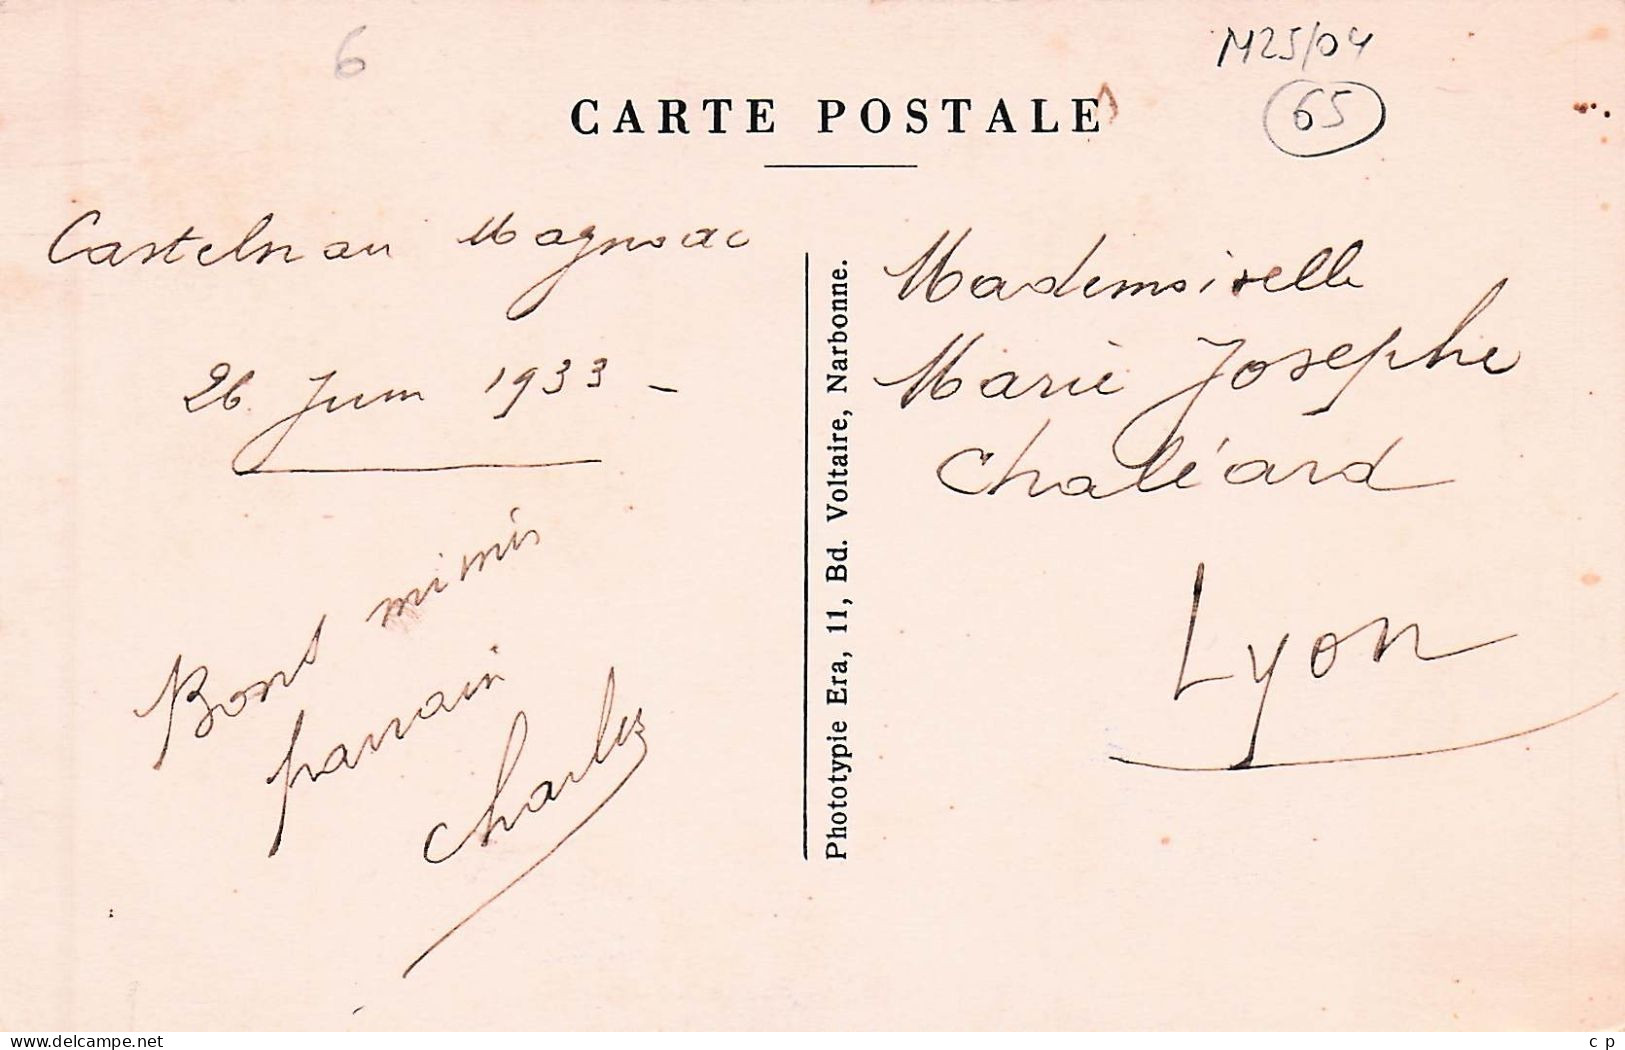 6
M25/04
65
CARTE POSTALE
Castelnau Magnoac
26 Juin 1933 -
Bons mimis
parrain
Charles
Phototypie Era, 11, Bd. Voltaire, Narbonne.
Mademoiselle
Marie Josephe
Chaléard
Lyon
delcampe.net
c p